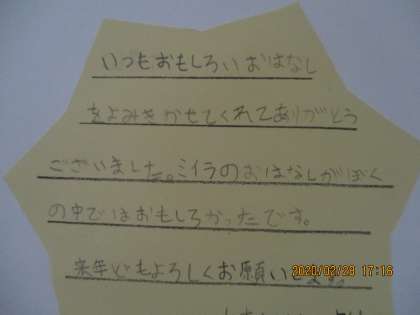 いつもおもしろいおはなし
をよみきかせてくれてありがとう
ございました。ミイラのおはなしがぼく
の中ではおもしろかったです。
来年どもよろしくお願いします。
2020/02/28 17:16